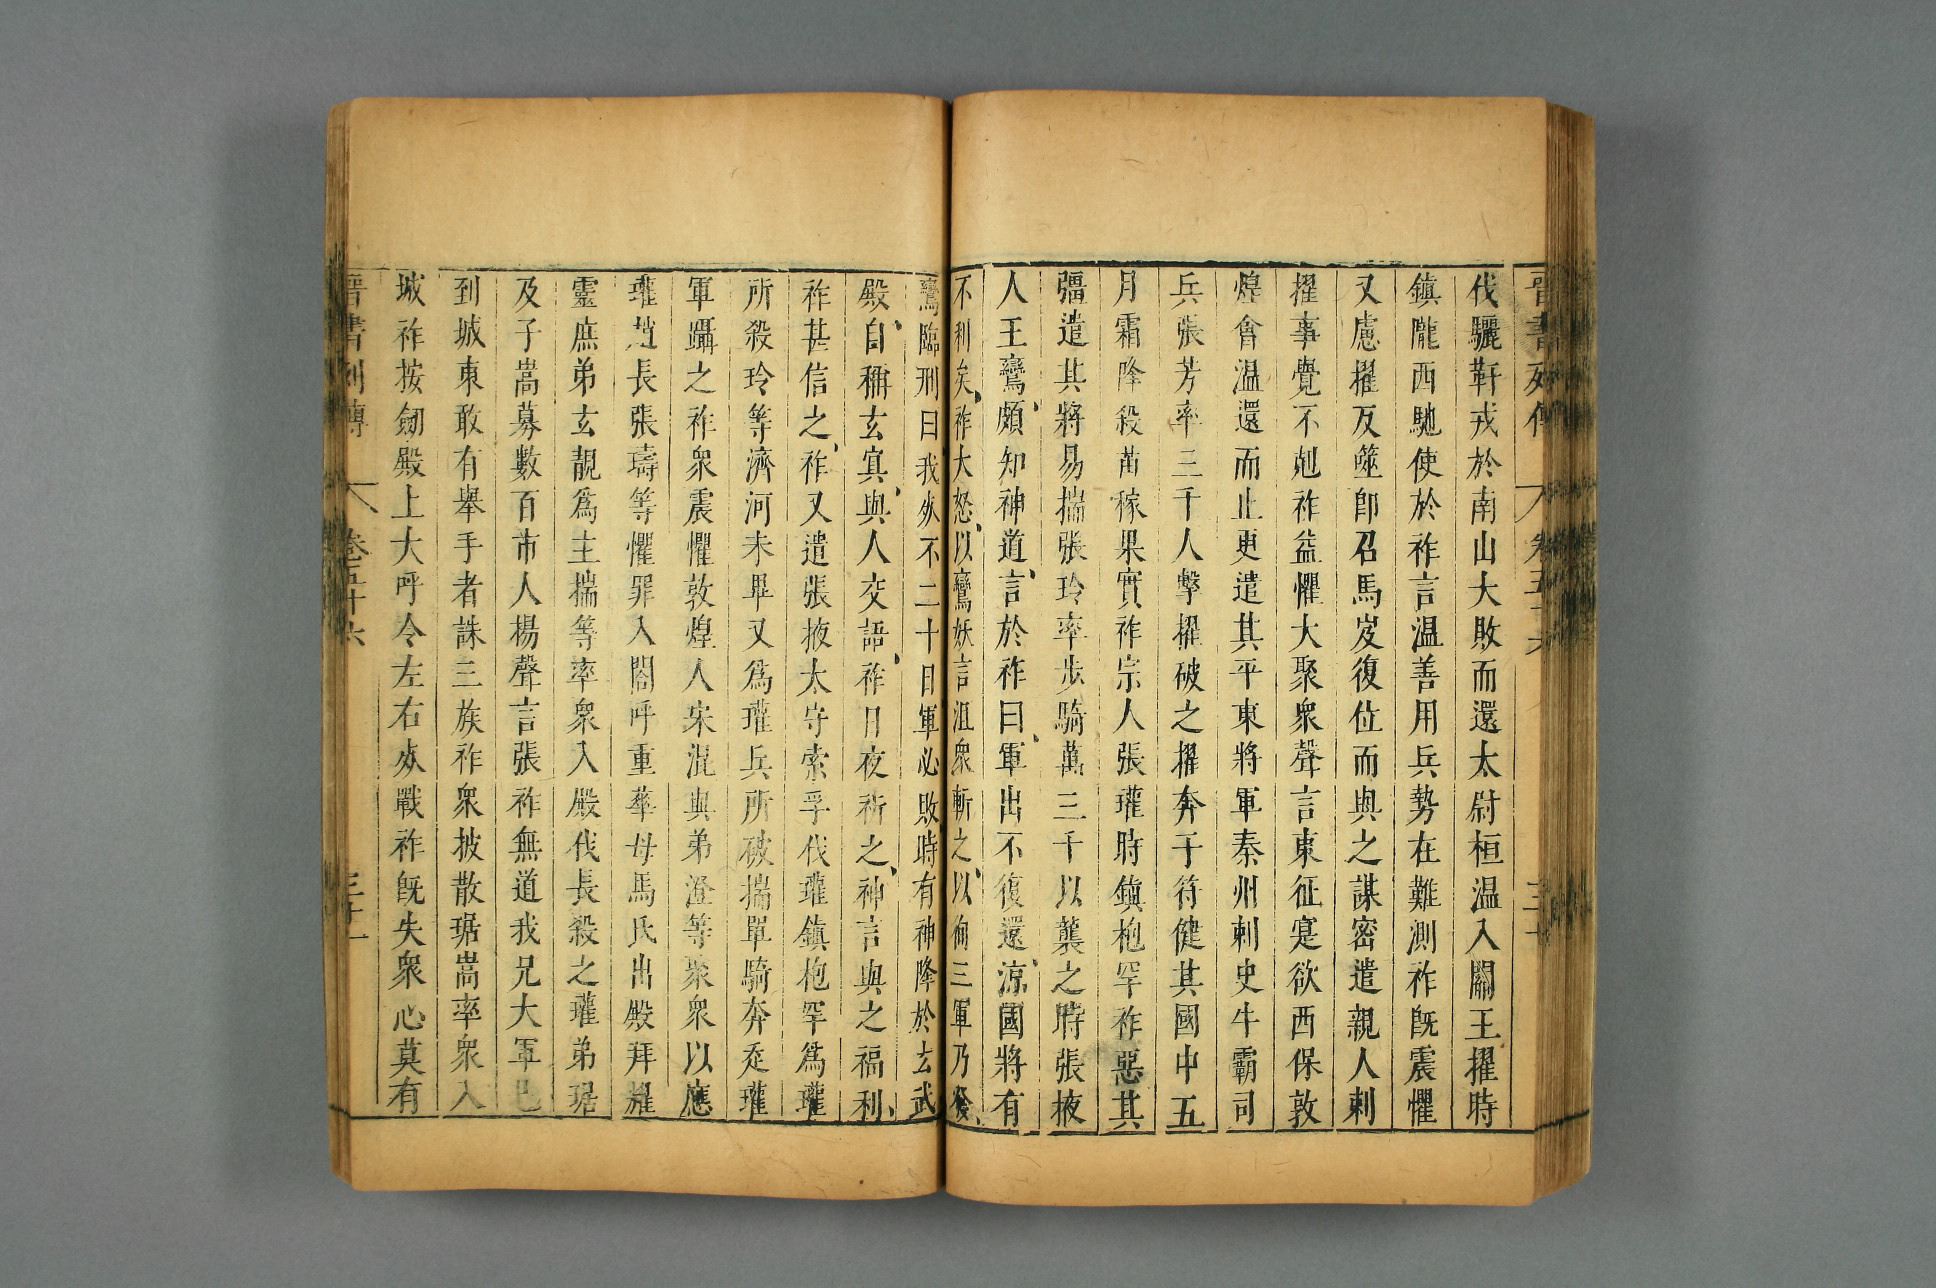 晉書列傳 卷五十六 三十
伐驪靬戎於南山大敗而還太尉桓温入關王擢時
鎮隴西馳使於祚言温善用兵勢在難測祚旣震懼
又慮擢反噬卽召馬岌復位而與之謀密遣親人刺
擢事覺不剋祚益懼大聚衆聲言東征寔欲西保敦
煌會温還而止更遣其平東將軍秦州刺史牛霸司
兵張芳率三千人擊擢破之擢奔于苻健其國中五
月霜降殺苗稼果實祚宗人張瓘時鎮枹罕祚惡其
彊遣其將易揣張玲率步騎萬三千以襲之時張掖
人王鸞頗知神道言於祚曰軍出不復還涼國將有
不利矣祚大怒以鸞妖言沮衆斬之以徇三軍乃發
鸞臨刑曰我死不二十日軍必敗時有神降於玄武
殿自稱玄冥與人交語祚日夜祈之神言與之福利
祚甚信之祚又遣張掖太守索孚伐瓘鎮枹罕爲瓘
所殺玲等濟河未畢又爲瓘兵所破揣單騎奔走瓘
軍躡之祚衆震懼敦煌人宋混與弟澄等聚衆以應
瓘趙長張璹等懼罪入閤呼重華母馬氏出殿拜耀
靈庶弟玄靚爲主揣等率衆入殿伐長殺之瓘弟琚
及子嵩募數百市人楊聲言張祚無道我兄大軍已
到城東敢有舉手者誅三族祚衆披散琚嵩率衆入
城祚按劒殿上大呼令左右死戰祚旣失衆心莫有
晉書列傳 卷五十六 三十一